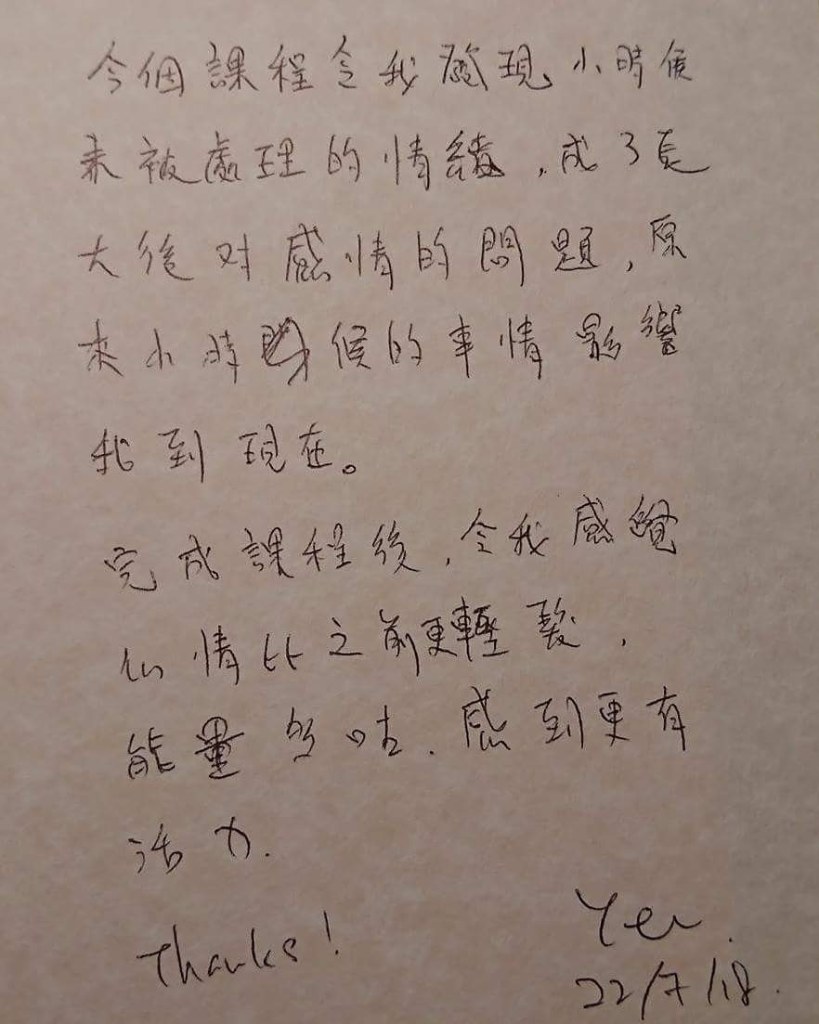 今個課程令我發現,小時候
未被處理的情緒,成了長
大後对感情的問題,原
來小時候的事情影響
我到現在。
完成課程後,令我感覺
心情比之前更輕鬆,
能量多咗.感到更有
活力.
Thanks!
Yen.
22/7/18.